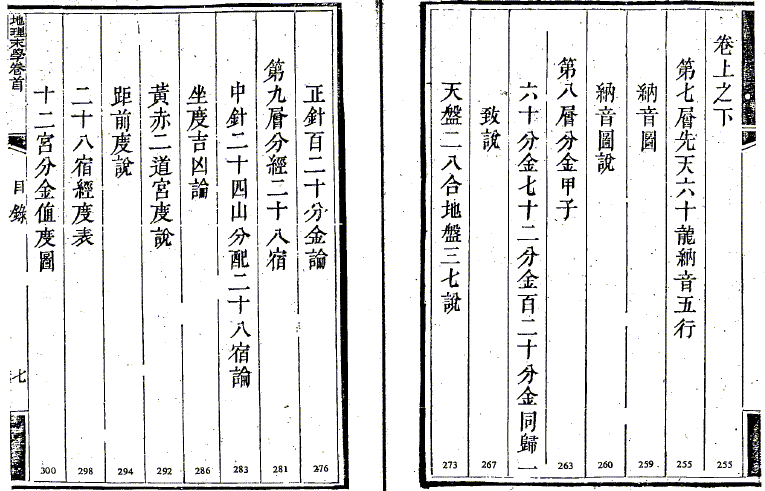 卷上之下
255
第七層先天六十龍納音五行
255
納音圖
259
納音圖說
260
第八層分金甲子
263
六十分金七十二分金百二十分金同歸一
致說
267
天盤二八合地盤三七說
273
正針百二十分金論
276
第九層分經二十八宿
281
中針二十四山分配二十八宿論
283
坐度吉凶論
286
黃赤二道宮度說
292
距前度說
294
二十八宿經度表
298
十二宮分金値度圖
300
地理末學卷首
目錄
七